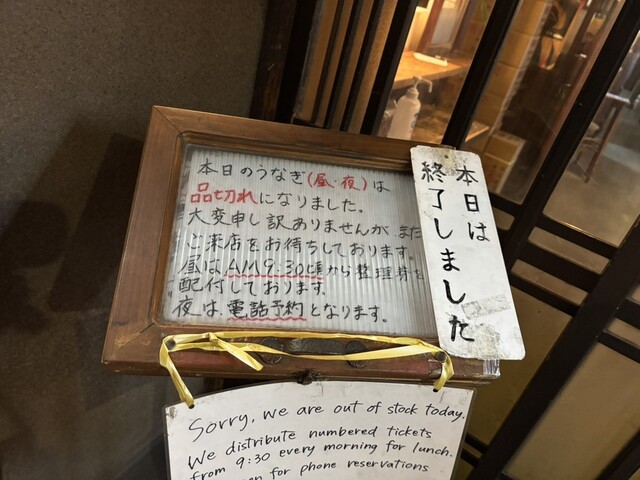 本日のうなぎ(昼・夜)は
品切れになりました。
大変申し訳ありませんが、また
ご来店をお待ちしております。
昼はAM9:30頃から整理券を
配付しております。
夜は電話予約となります。
本日は
終了しました
Sorry, we are out of stock today.
We distribute numbered tickets
from 9:30 every morning for lunch.
for phone reservations